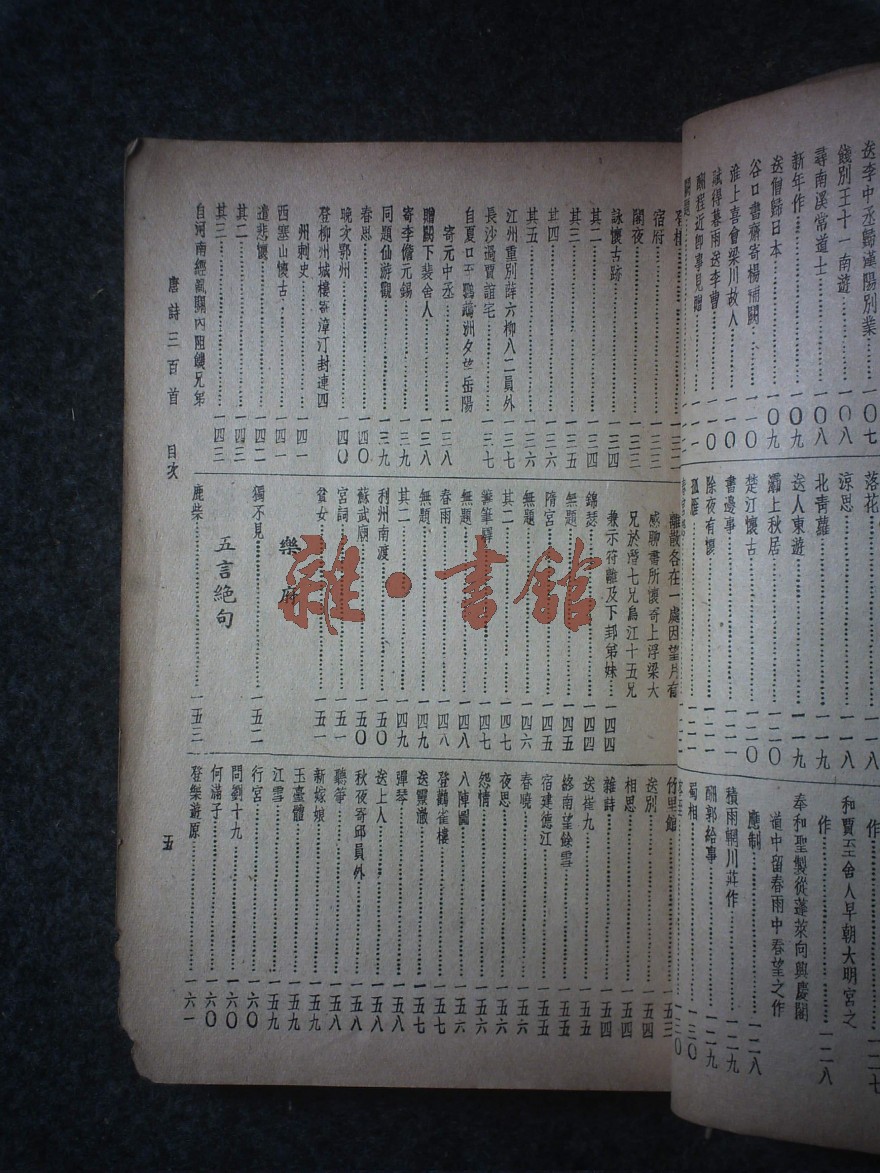 送李中丞歸漢陽別業……一〇七
餞別王十一南遊……一〇八
尋南溪常道士……一〇八
新年作……一〇九
送僧歸日本……一〇九
谷口書齋寄楊補闕……一一〇
淮上喜會梁川故人……一一〇
賦得暮雨送李曹……一一〇
酬程近卽事見贈……一一一
闕題
落花……一一八
涼思……一一八
北青蘿……一一九
送人東遊……一一九
灞上秋居……一二〇
楚江懷古……一二〇
書邊事……一二一
除夜有懷……一二一
孤雁
和賈至舍人早朝大明宮之
作……一二七
奉和聖製從蓬萊向興慶閣
道中留春雨中春望之作
應制……一二八
積雨輞川莊作……一二九
酬郭給事……一二九
蜀相……一三〇
登樓
宿府……一三三
閣夜……一三三
詠懷古跡……一三四
其二……一三四
其三……一三五
其四……一三六
其五……一三六
江州重別薛六柳八二員外……一三七
長沙過賈誼宅……一三七
自夏口至鸚鵡洲夕望岳陽
寄元中丞……一三八
贈闕下裴舍人……一三八
寄李儋元錫……一三九
同題仙游觀……一三九
春思……一四〇
晚次鄂州……一四〇
登柳州城樓寄漳汀封連四
州刺史……一四一
西塞山懷古……一四一
遣悲懷……一四二
其二……一四三
其三……一四三
自河南經亂關內阻饑兄弟
離散各在一處因望月有
感聊書所懷寄上浮梁大
兄於潛七兄烏江十五兄
兼示符離及下邽弟妹……一四四
錦瑟……一四四
無題……一四五
隋宮……一四五
無題……一四六
其二……一四七
籌筆驛……一四七
無題……一四八
春雨……一四八
無題……一四九
其二……一四九
利州南渡……一五〇
蘇武廟……一五〇
宮詞……一五一
貧女……一五一
樂府
獨不見……一五二
五言絕句
鹿柴……一五三
竹里館……一五三
送別……一五四
相思……一五四
雜詩……一五四
送崔九……一五五
終南望餘雪……一五五
宿建德江……一五五
春曉……一五六
夜思……一五六
怨情……一五六
八陣圖……一五六
登鸛雀樓……一五七
送靈澈……一五七
彈琴……一五八
送上人……一五八
秋夜寄邱員外……一五八
聽箏……一五八
新嫁娘……一五九
玉臺體……一五九
江雪……一五九
行宮……一六〇
問劉十九……一六〇
何滿子……一六〇
登樂遊原……一六一
唐詩三百首 目次
五
雜·書館